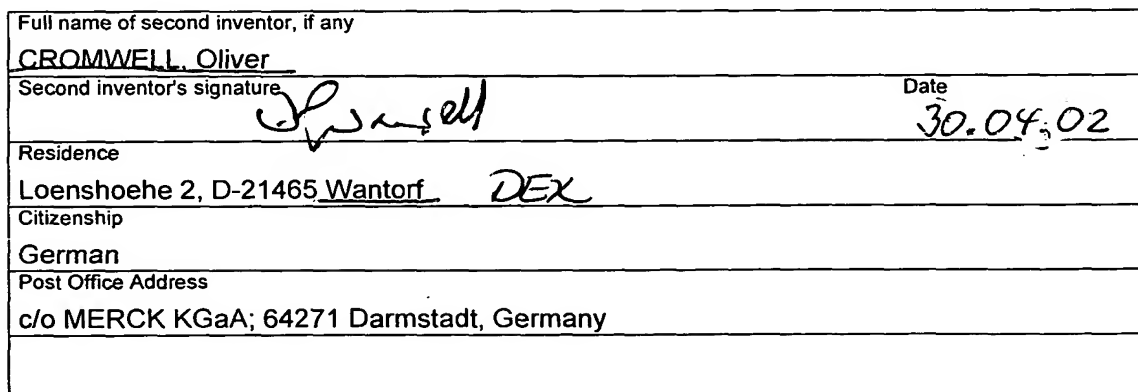 Full name of second inventor, if any
CROMWELL, Oliver
Second inventor's signature Date
30.04.02
Residence
Loenshoehe 2, D-21465 Wantorf DEX
Citizenship
German
Post Office Address
c/o MERCK KGaA; 64271 Darmstadt, Germany